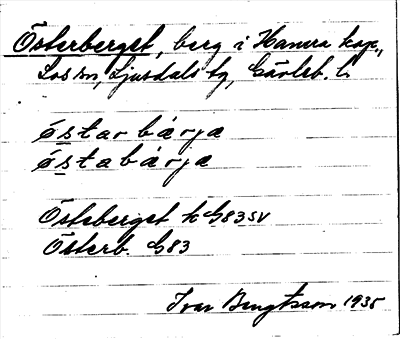 Österberget, berg i Hamra kap.,
Los sn, Ljusdals tg, Gävleb. l.
östar bárja
östabárja
Östeberget k G83SV
Österb. G83
Ivar Bengtsson 1935